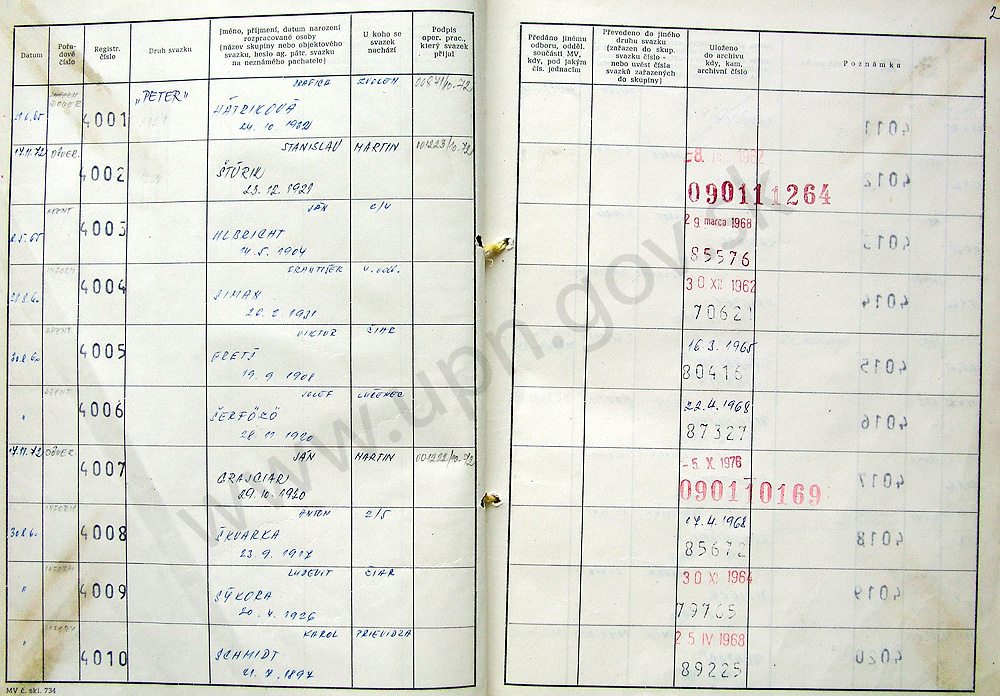 2
Datum
Pořa-
dové
číslo
Registr.
číslo
Druh svazku
Jméno, příjmení, datum narození
rozpracované osoby
(název skupiny nebo objektového
svazku, heslo ag. pátr. svazku
na neznámého pachatele)
U koho se
svazek
nachází
Podpis
oper. prac.,
který svazek
přijal
Předáno jinému
odboru, odděl.
součásti MV,
kdy, pod jakým
čís. jednacím
Převedeno do jiného
druhu svazku
(zařazen do skup.
svazku číslo -
nebo uvést čísla
svazků zařazených
do skupiny)
Uloženo
do archivu
kdy, kam,
archivní číslo
Poznámka
DÔVER
4001
„PETER"
HÁTRIKOVÁ
24. 10. 1932
ZVOLEN
4011
17.11.72
DÔVER.
4002
STANISLAV
ŠTÚRIK
23. 12. 1921
MARTIN
001223/10-72
1962
090111264
4012
AGENT
4003
JÁN
ALBRICHT
14. 5. 1904
29 marca 1968
85576
4013
INFORM
4004
FRANTIŠEK
SIMAN
20. 2. 1931
30 XII 1962
70621
4014
AGENT
4005
VIKTOR
19. 9. 1908
ČIAR
16 3. 1965
80416
4015
"
AGENT
4006
JOZEF
ŠERFÖZÖ
28. 11. 1920
LUČENEC
22. 4. 1968
87327
4016
17.11.72
DÔVER
4007
JÁN
GRAJCIAR
29. 10. 1920
MARTIN
001222/10-72
-5. X. 1976
090110169
4017
INFORM
4008
ANTON
ŠKVARKA
23. 9. 1917
2/5
17. 4. 1968
85672
4018
"
INFORM
4009
ĽUDEVIT
SÝKORA
20. 4. 1926
ČIAR
30 XI 1964
79765
4019
"
INFORM
4010
KAROL
SCHMIDT
21. 7. 1897
PRIEVIDZA
25 IV 1968
89225
4020
MV č. skl. 734
www.upn.gov.sk